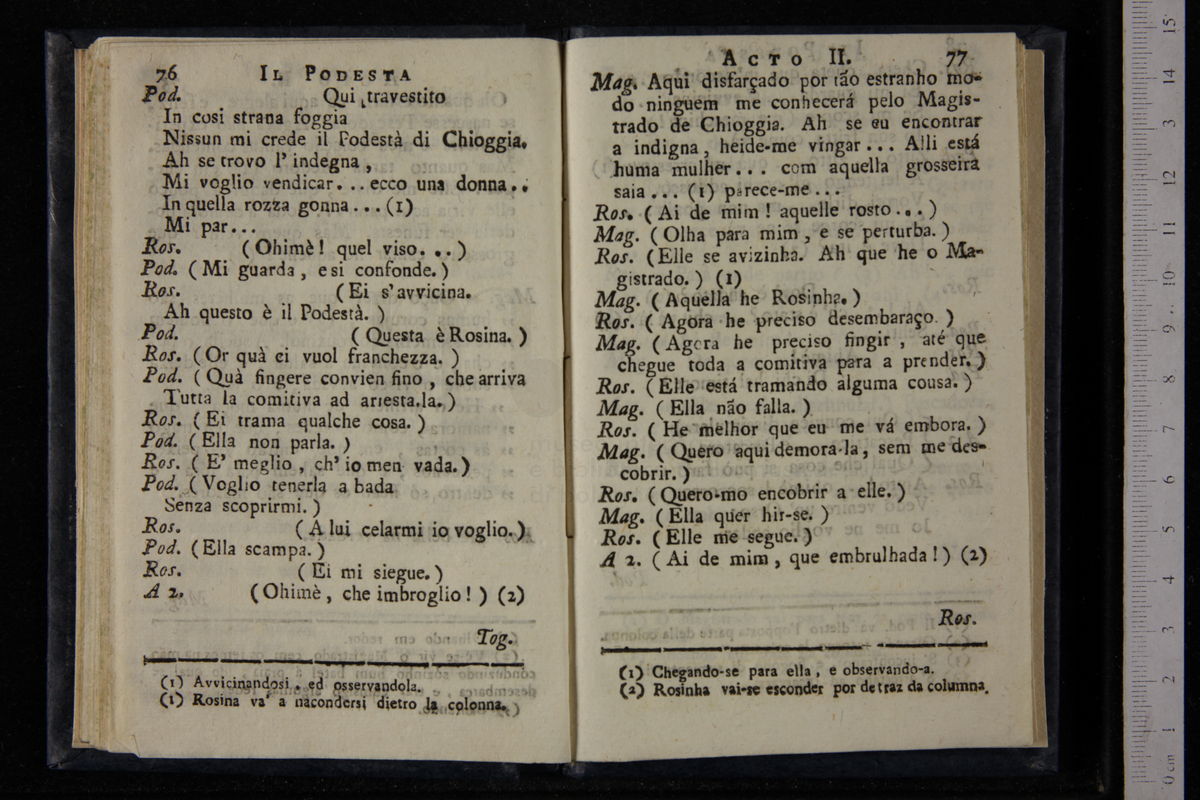 76 IL PODESTA
Pod. Qui travestito
In cosi strana foggia
Nissun mi crede il Podestà di Chioggia.
Ah se trovo l' indegna,
Mi voglio vendicar... ecco una donna..
In quella rozza gonna... (1)
Mi par...
Ros. (Ohimè! quel viso...)
Pod. (Mi guarda, e si confonde.)
Ros. (Ei s' avvicina.
Ah questo è il Podestà.)
Pod. (Questa è Rosina.)
Ros. (Or quà ci vuol franchezza.)
Pod. (Quà fingere convien fino, che arriva
Tutta la comitiva ad arresta.la.)
Ros. (Ei trama qualche cosa.)
Pod. (Ella non parla.)
Ros. (E' meglio, ch' io men vada.)
Pod. (Voglio tenerla a bada
Senza scoprirmi.)
Ros. (A lui celarmi io voglio.)
Pod. (Ella scampa.)
Ros. (Ei mi siegue.)
A 2. (Ohimè, che imbroglio!) (2)
Tog.
(1) Avvicinandosi, ed osservandola.
(1) Rosina va' a nacondersi dietro la colonna.
ACTO II. 77
Mag. Aqui disfarçado por tão estranho mo-
do ninguem me conhecerá pelo Magis-
trado de Chioggia. Ah se eu encontrar
a indigna, heide-me vingar... Alli está
huma mulher... com aquella grosseira
saia... (1) parece-me...
Ros. (Ai de mim! aquelle rosto...)
Mag. (Olha para mim, e se perturba.)
Ros. (Elle se avizinha. Ah que he o Ma-
gistrado.) (1)
Mag. (Aquella he Rosinha.)
Ros. (Agora he preciso desembaraço.)
Mag. (Agora he preciso fingir, até que
chegue toda a comitiva para a prender.)
Ros. (Elle está tramando alguma cousa.)
Mag. (Ella não falla.)
Ros. (He melhor que eu me vá embora.)
Mag. (Quero aqui demora-la, sem me des-
cobrir.)
Ros. (Quero-mo encobrir a elle.)
Mag. (Ella quer hir-se.)
Ros. (Elle me segue.)
A 2. (Ai de mim, que embrulhada!) (2)
Ros.
(1) Chegando-se para ella, e observando-a.
(2) Rosinha vai-se esconder por detraz da columna.
0 cm 1 2 3 4 5 6 7 8 9 10 11 12 13 14 15